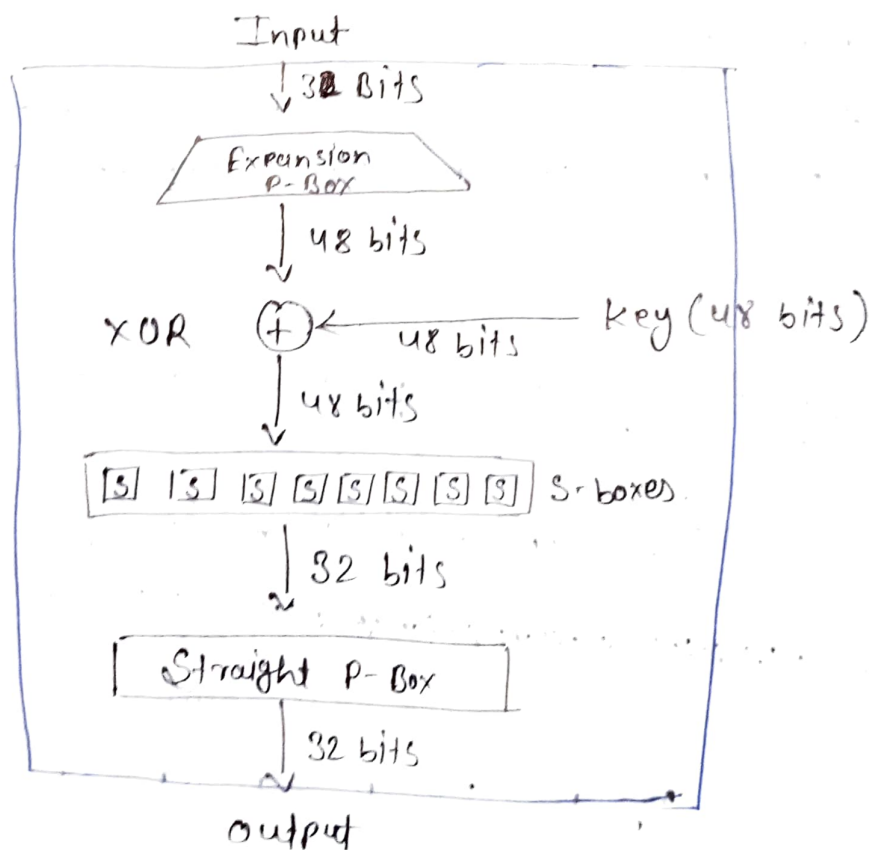 Input
32 Bits
Expansion
P-Box
48 bits
XOR
+
48 bits
key (48 bits)
48 bits
S S S S S S S S
S-boxes
32 bits
Straight P-Box
32 bits
output